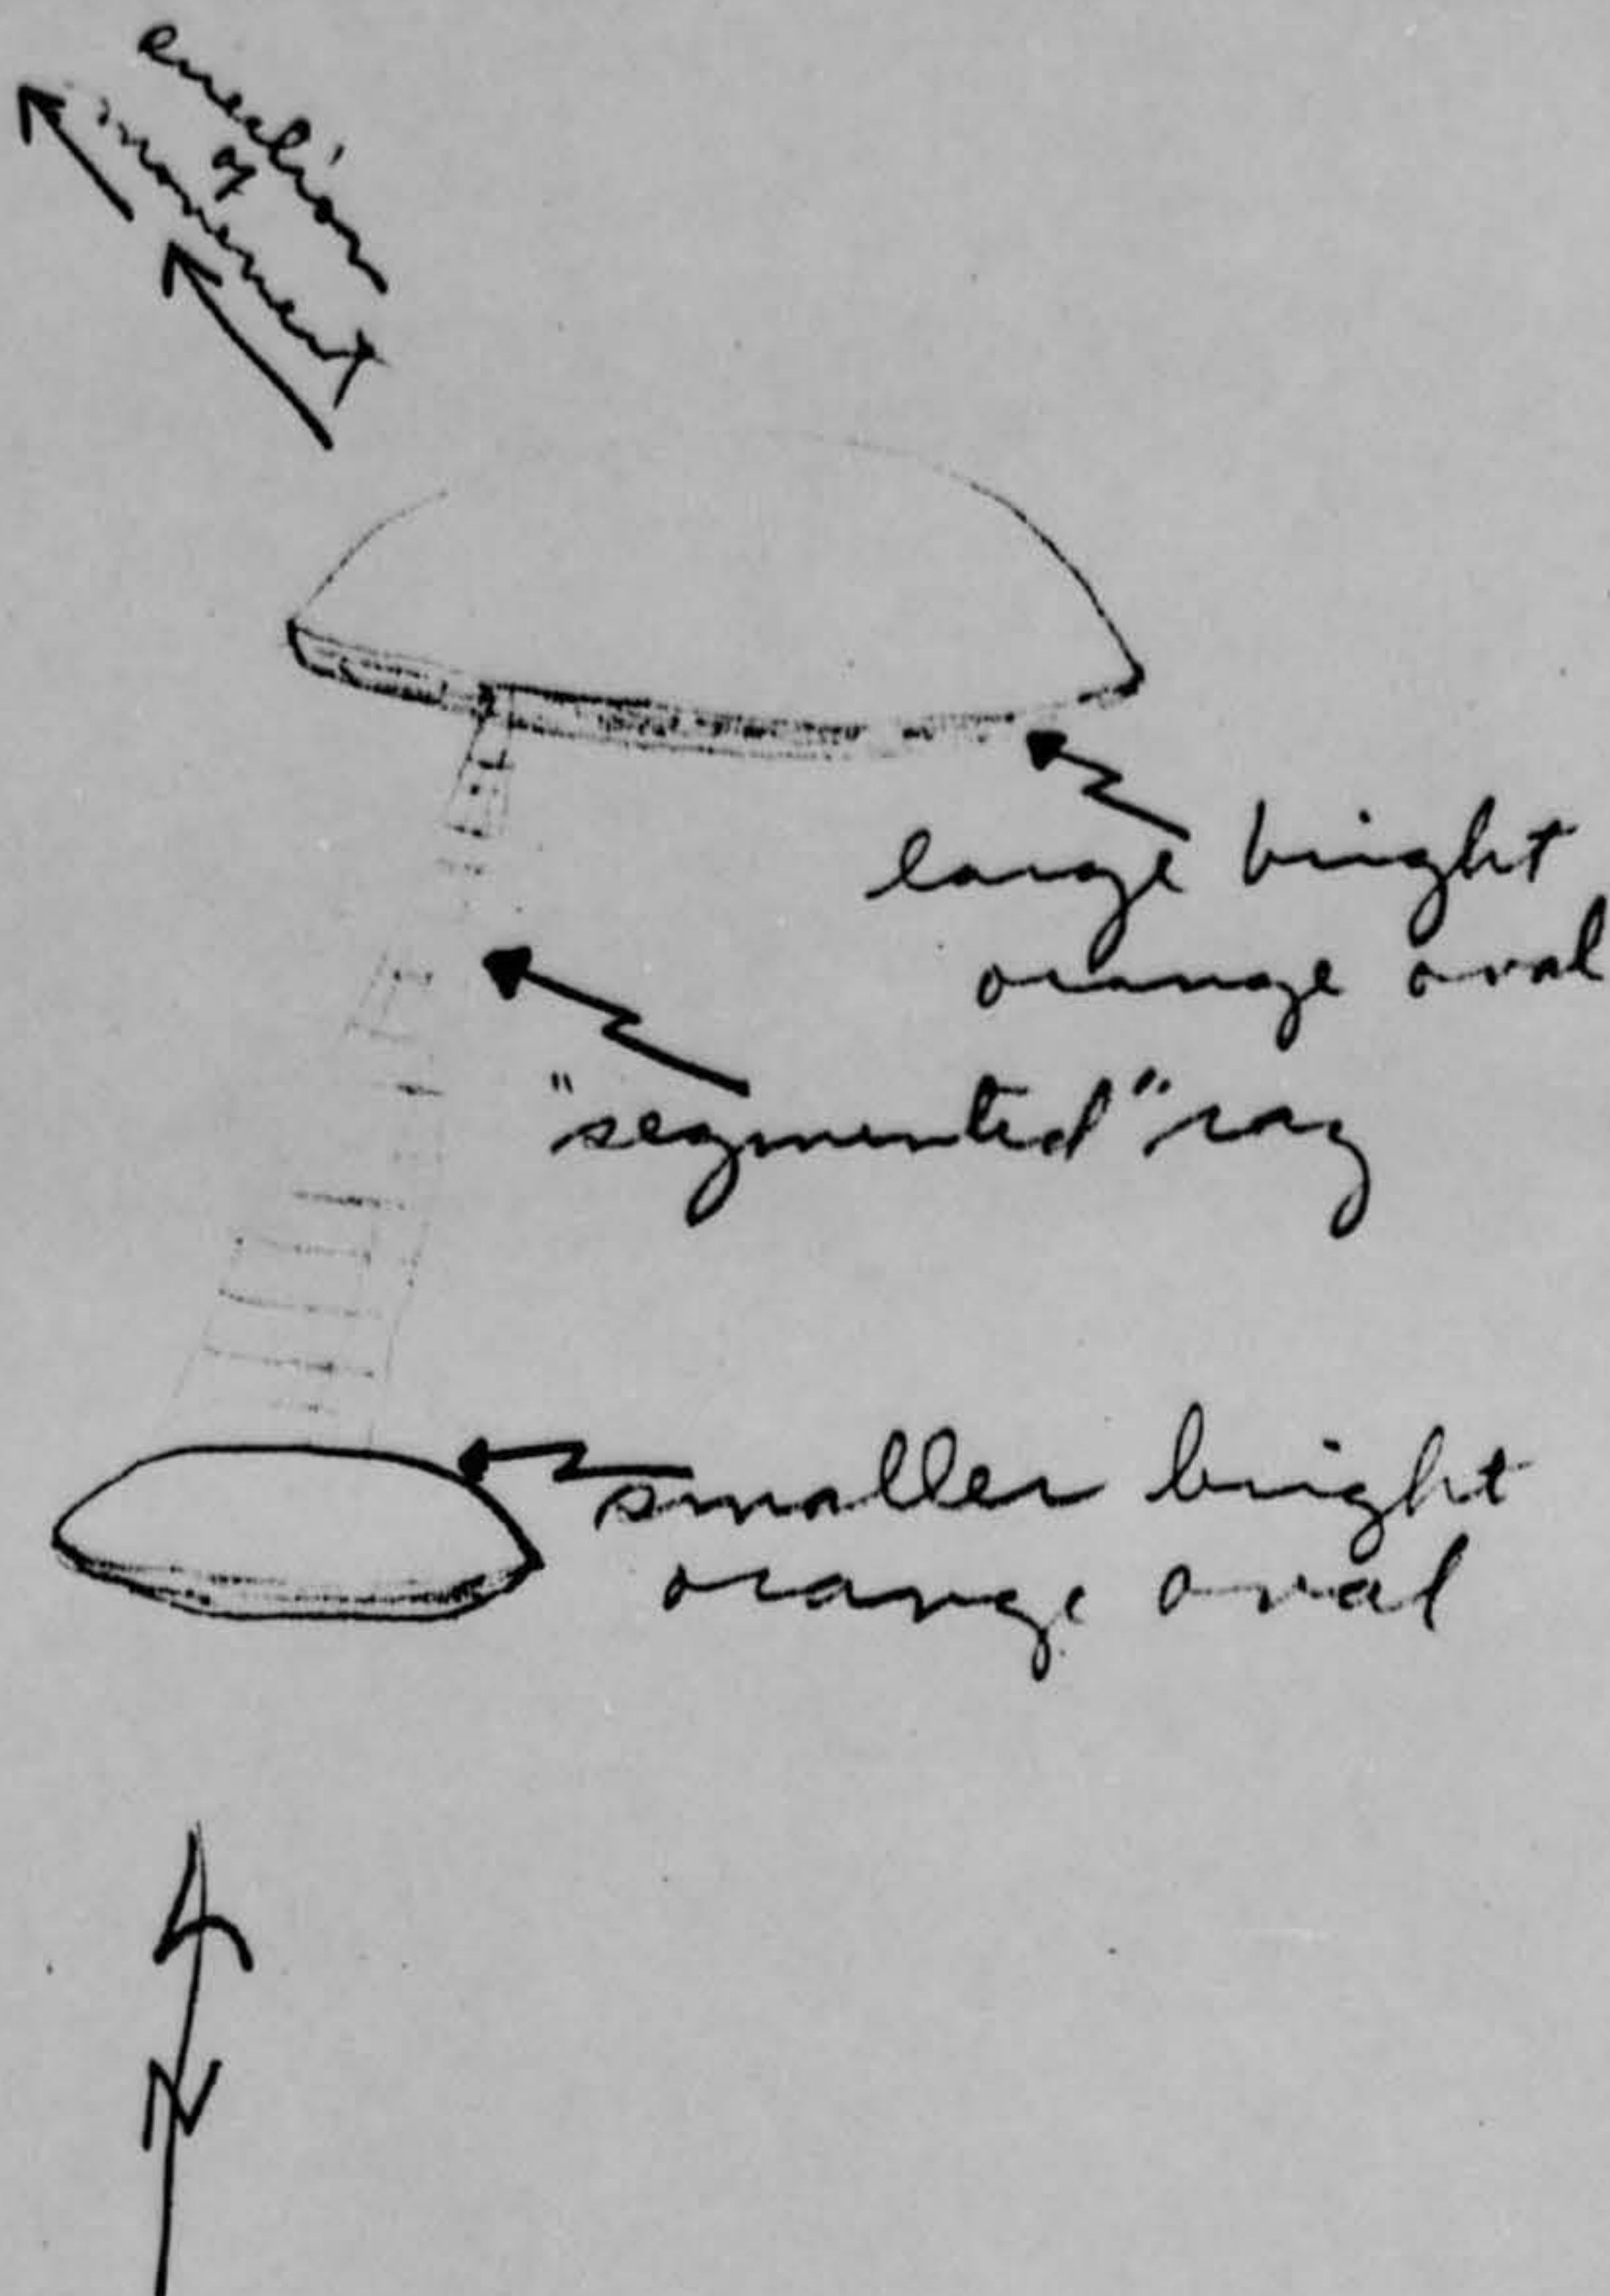 erection
of
movement
large bright
orange oval
"segmented" ray
smaller bright
orange oval
N